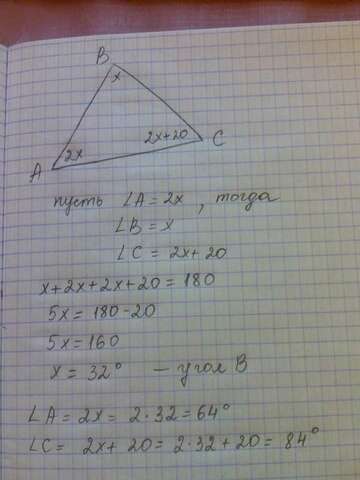 B
x
2x+20
C
2x
A
пусть ∠A = 2x , тогда
∠B = x
∠C = 2x + 20
x+2x+2x+20 = 180
5x = 180 - 20
5x = 160
x = 32° — угол B
∠A = 2x = 2·32 = 64°
∠C = 2x + 20 = 2·32 + 20 = 84°